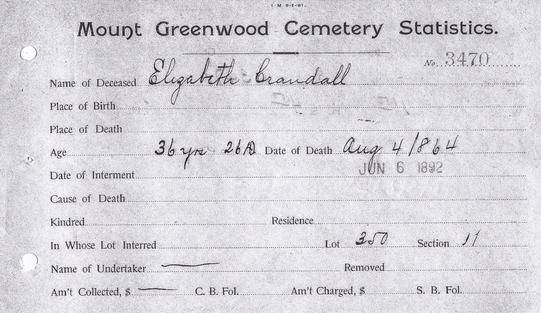 Mount Greenwood Cemetery Statistics.
No. 3470
Name of Deceased Elizabeth Crandall
Place of Birth
Place of Death
Age 36 yrs 26 D Date of Death Aug 4/1864
Date of Interment JUN 6 1892
Cause of Death
Kindred Residence
In Whose Lot Interred Lot 350 Section 11
Name of Undertaker Removed
Am't Collected, $ C. B. Fol. Am't Charged, $ S. B. Fol.